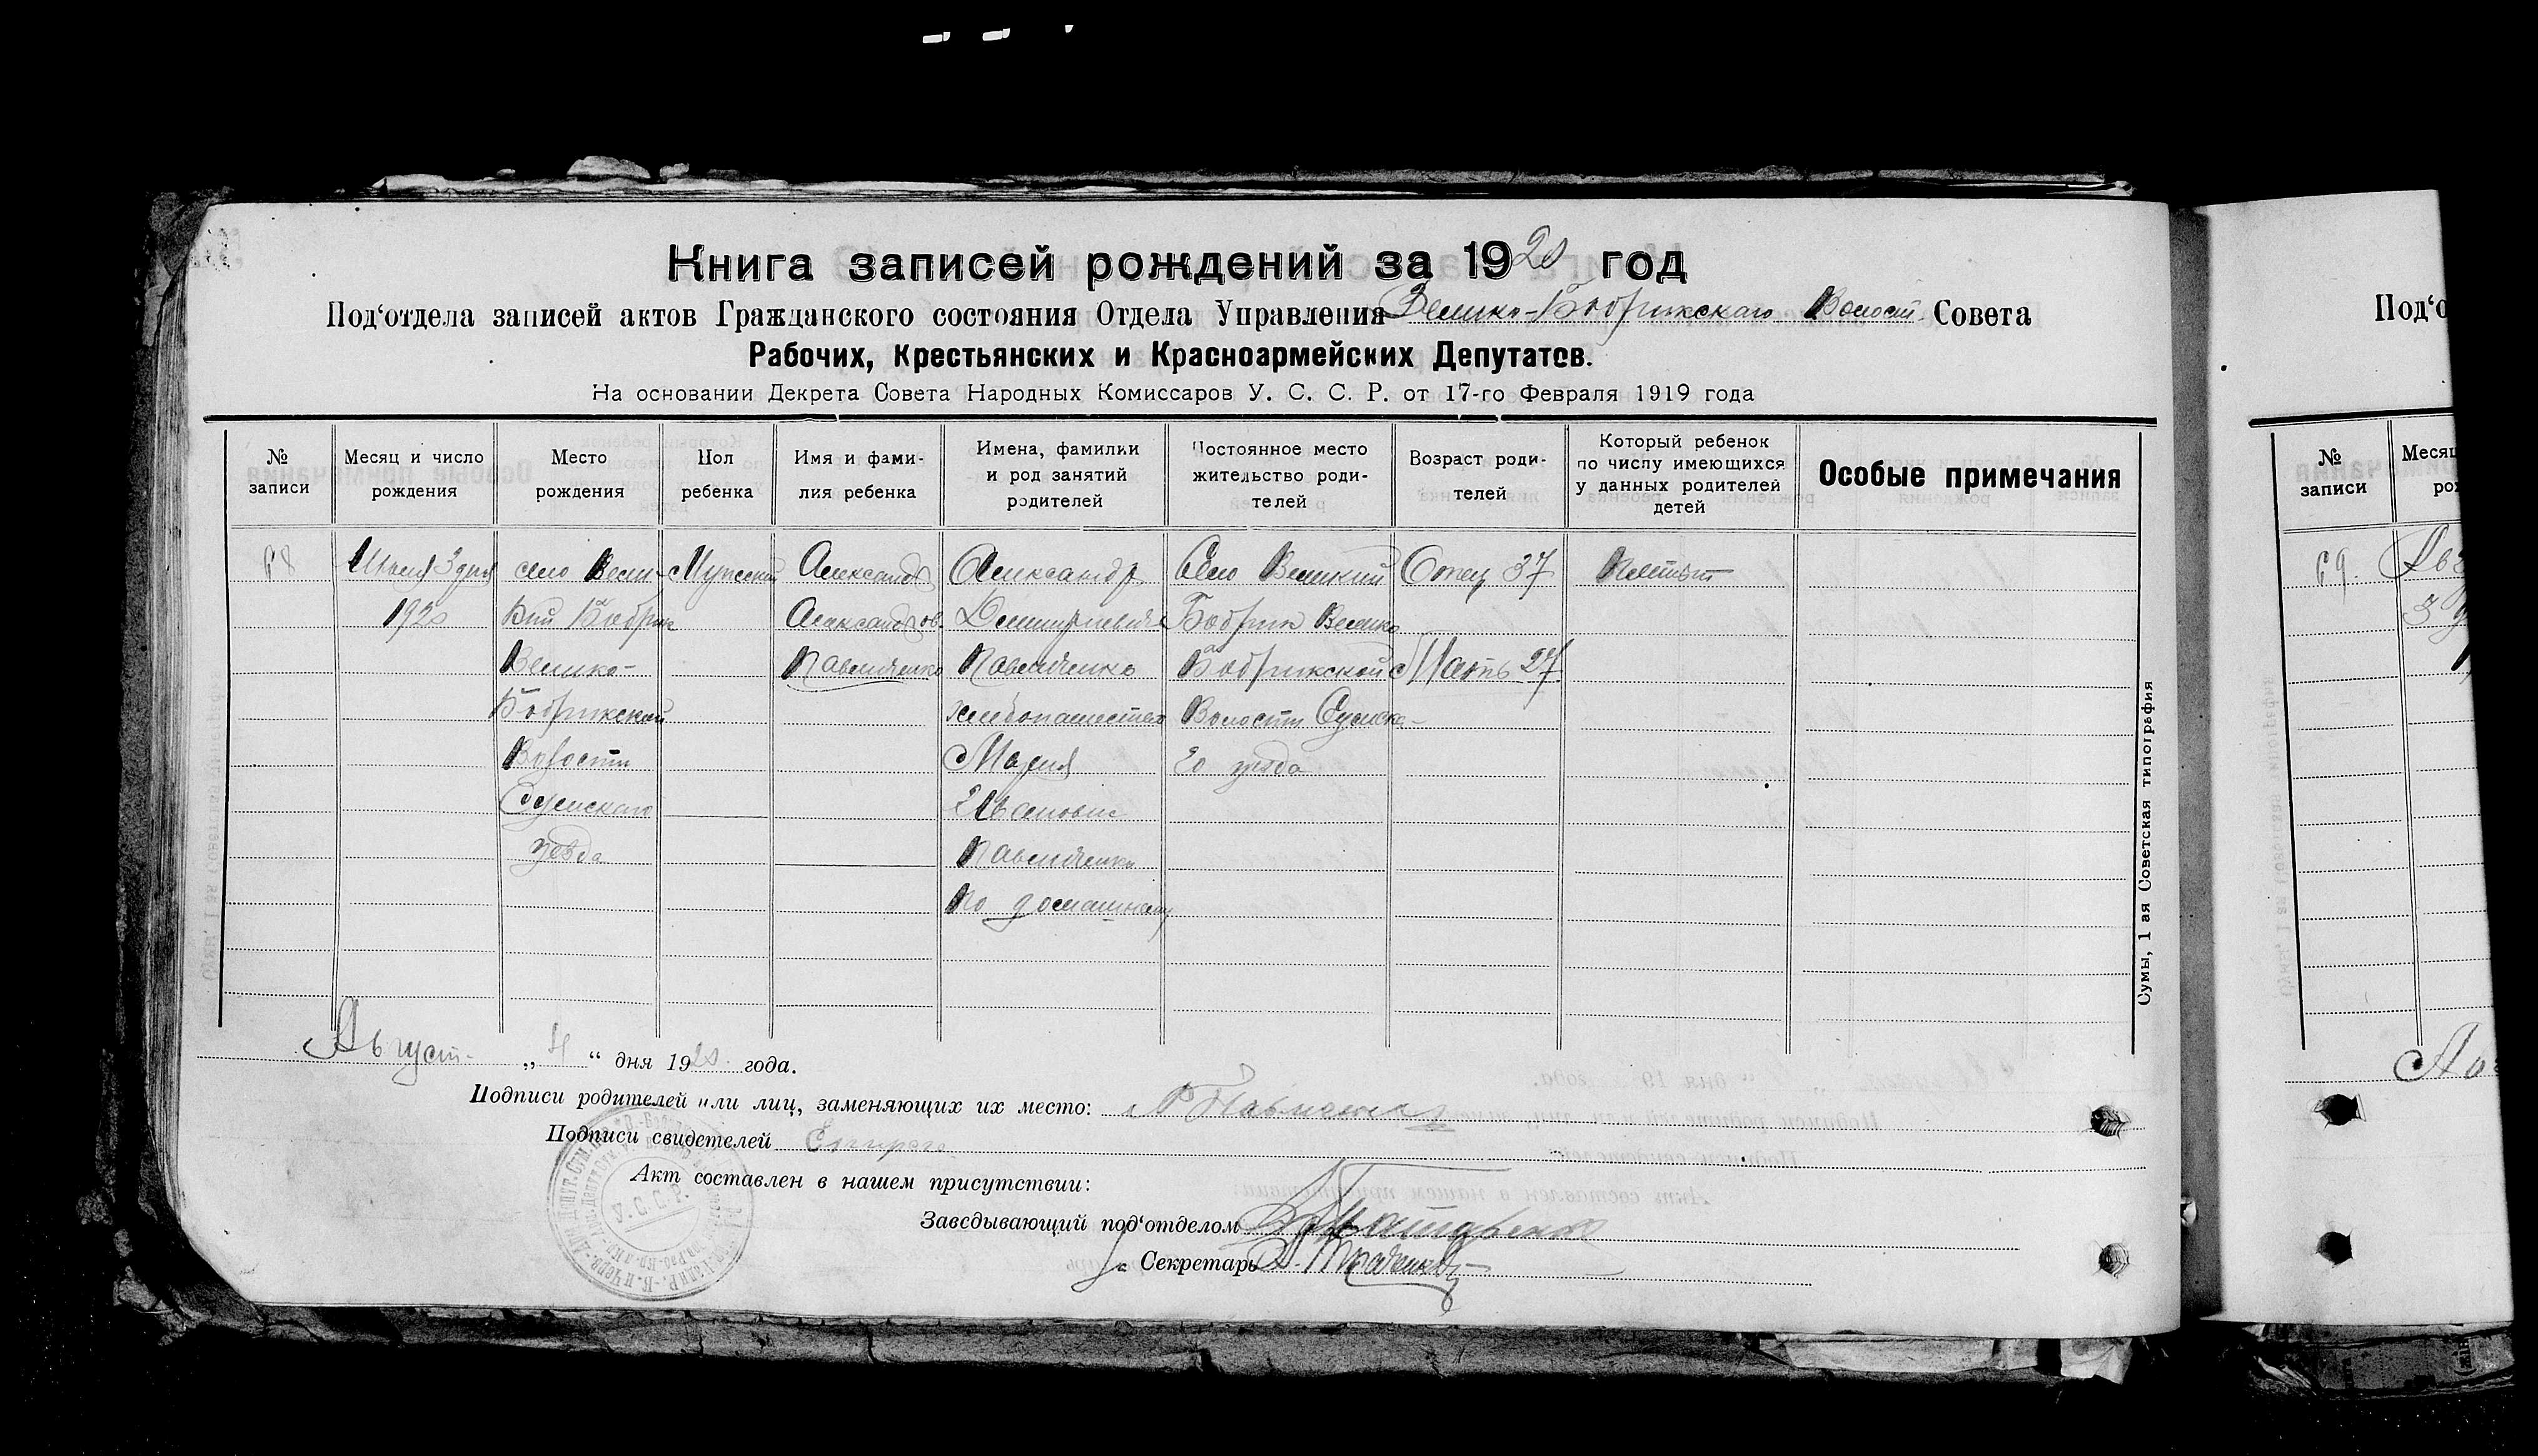 Книга записей рождений за 1920 год
Под‘отдела записей актов Гражданского состояния Отдела Управления Велико-Бобрикского Волост. Совета
Рабочих, Крестьянских и Красноармейских Депутатов.
На основании Декрета Совета Народных Комиссаров У. С. С. Р. от 17-го Февраля 1919 года
№ записи
Месяц и число рождения
Место рождения
Пол ребенка
Имя и фами-
лия ребенка
Имена, фамилии
и род занятий
родителей
Постоянное место
жительство роди-
телей
Возраст роди-
телей
Который ребенок
по числу имеющихся
у данных родителей
детей
Особые примечания
68
3 дня
1920
село Вели-
кий Бобрик
Велико-
Бобрикской
Волости
Сумского
уезда
Мужской
Александр
Александров.
Павличенко
Александр
Димитриевич
Павличенко
хлебопашество
Мария
Ивановна
Павличенко
по домашнему
Село Великий
Бобрик Велико
Бобрикской
Волости Сумска-
го уезда
Отец 37
Мать 27
Пятый
Август „4“ дня 1920 года.
Подписи родителей или лиц, заменяющих их место:
Подписи свидетелей
Акт составлен в нашем присутствии:
Заведывающий под‘отделом
Секретарь
У.С.С.Р.
Сумы, 1 ая Советская типография
Под‘о
№ записи
Месяц
рож
69.
Авг
3